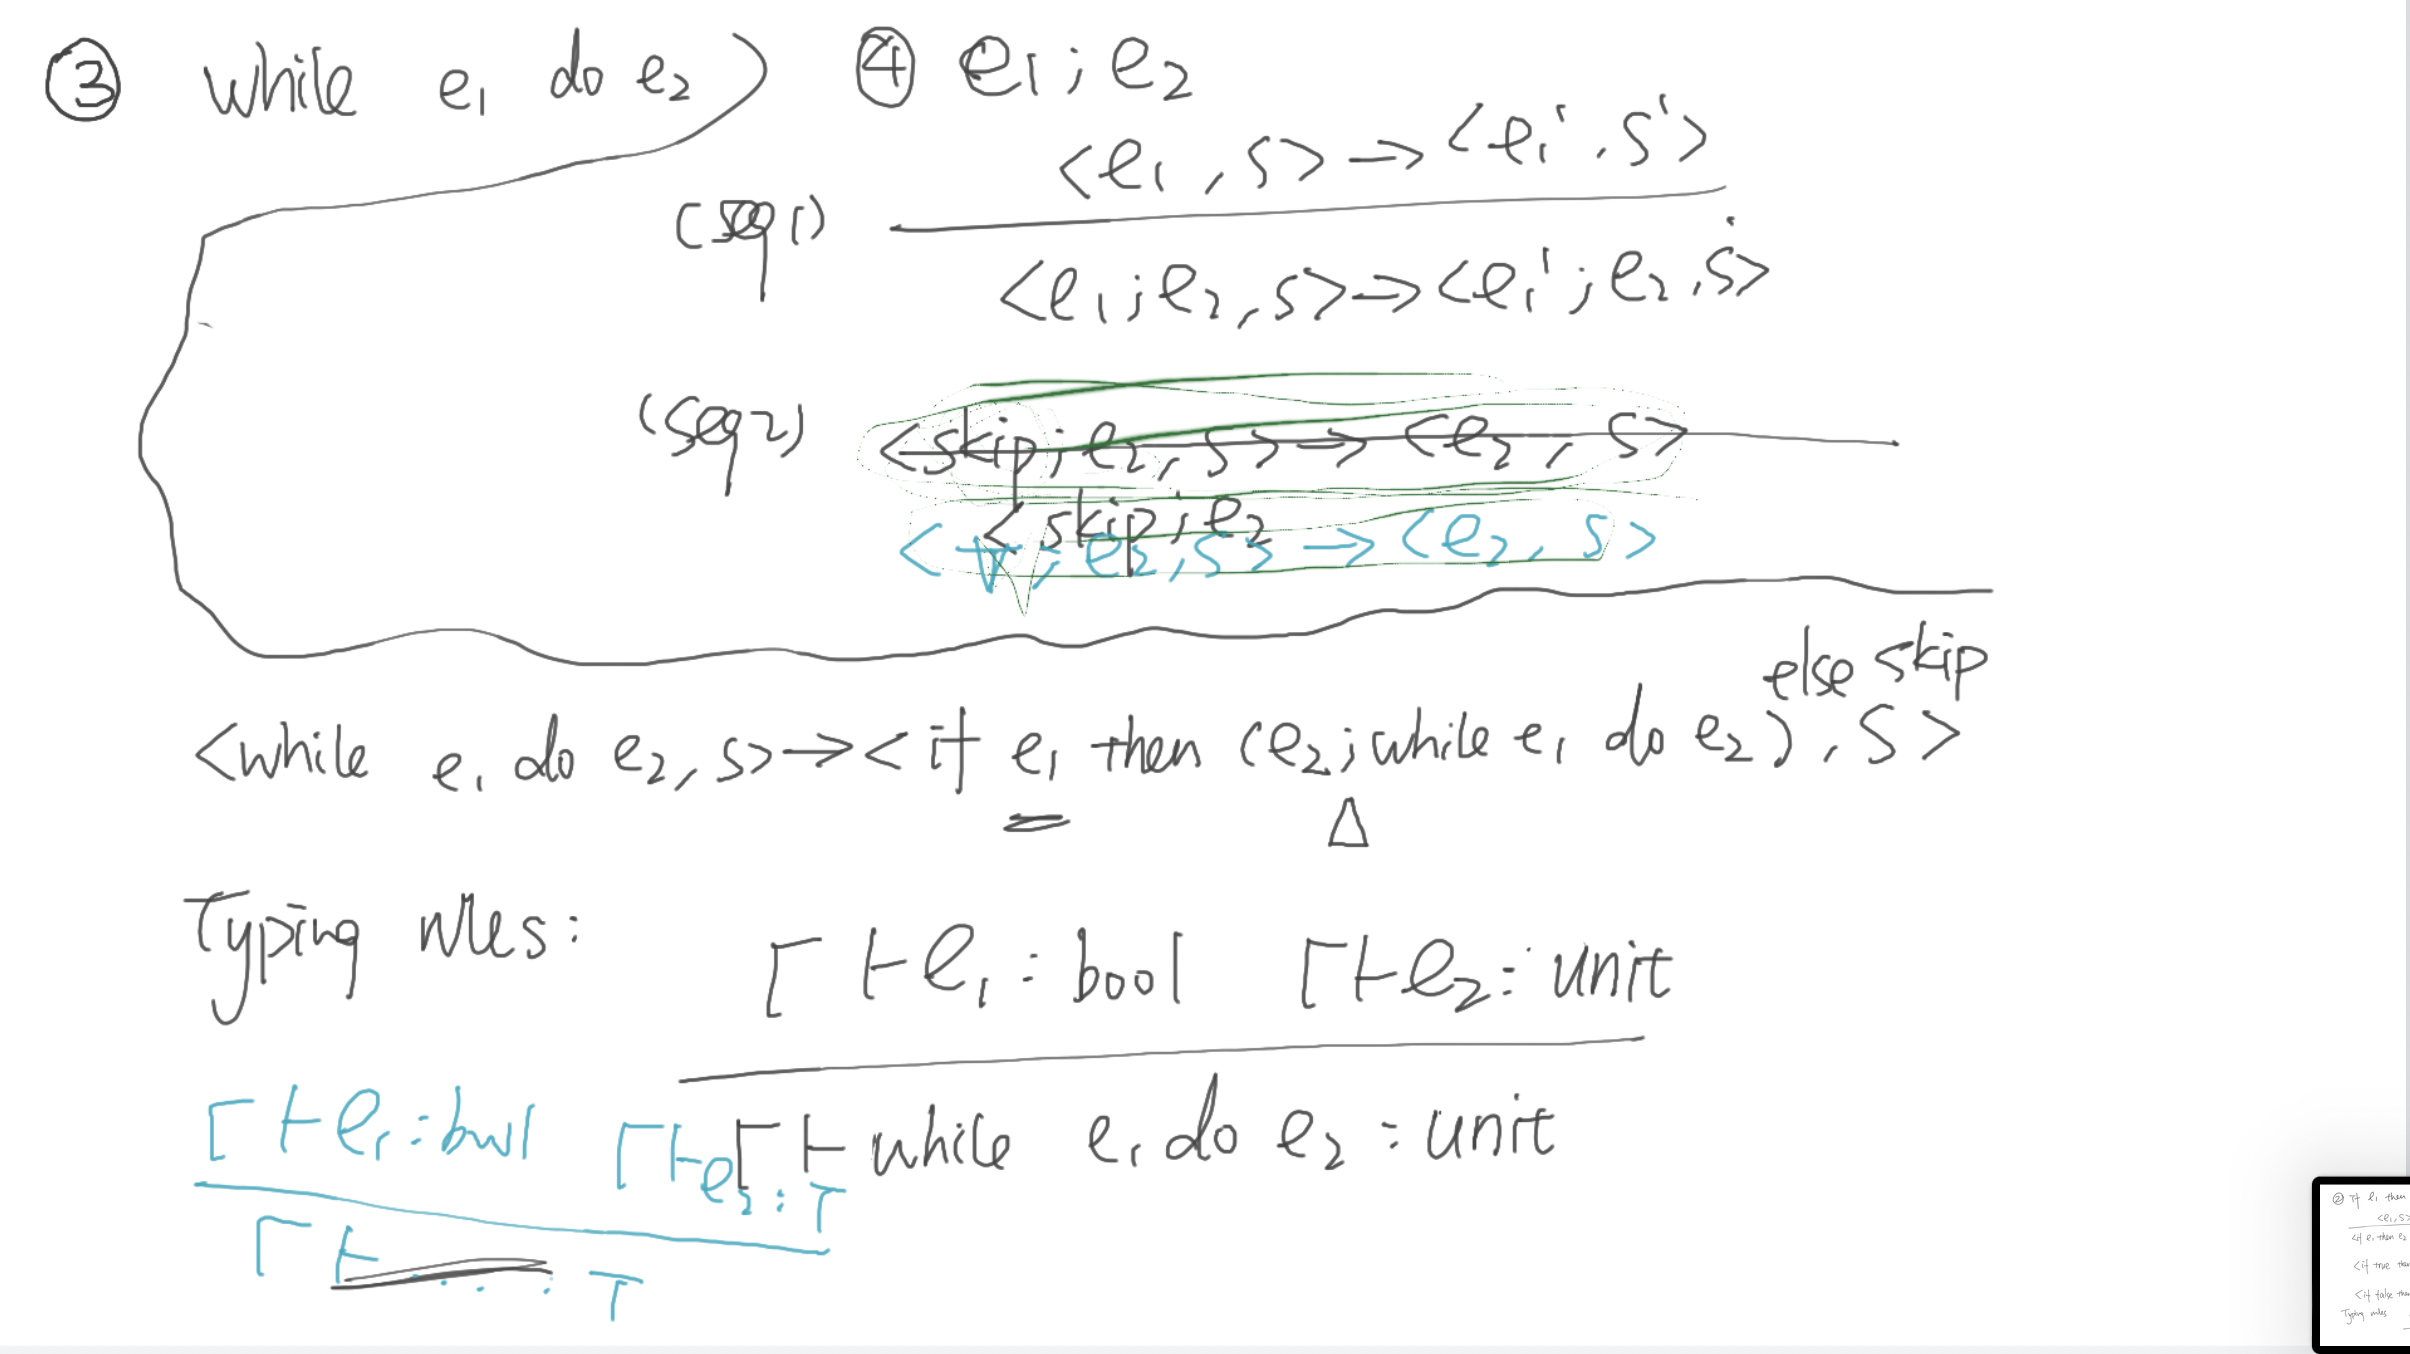 ③ while e₁ do e₂
④ e₁ ; e₂
<e₁, s> → <e₁', s'>
(seq1)
<e₁; e₂, s> → <e₁'; e₂, s'>
(seq2) <skip; e₂, s> → <e₂, s>
<skip; e₂
<v; e₂, s> → <e₂, s>
else skip
<while e₁ do e₂, s> → <if e₁ then (e₂; while e₁ do e₂), s>
Δ
Typing rules:
Γ ⊢ e₁ : bool Γ ⊢ e₂ : unit
Γ ⊢ while e₁ do e₂ : unit
Γ ⊢ e₁ : bool Γ ⊢ e₂ : T
Γ ⊢ .... : T
② if e₁ then
<e₁, s>
<if e₁ then e₂
<if true then
<if false then
Typing rules